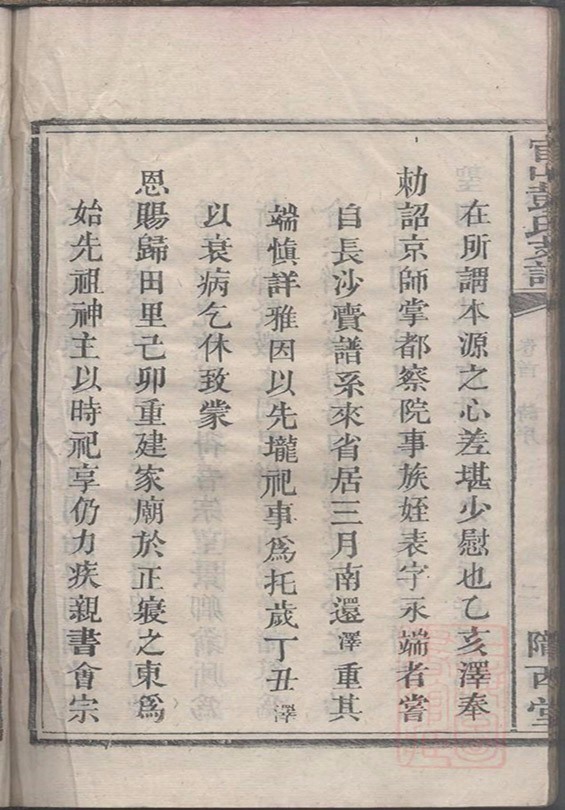 在所謂本源之心差堪少慰也乙亥澤奉
勅詔京師掌都察院事族姪表字永端者嘗
自長沙賫譜系來省居三月南還澤重其
端慎詳雅因以先壠祀事爲托歲丁丑澤
以衰病乞休致蒙
恩賜歸田里己卯重建家廟於正寢之東爲
始先祖神主以時祀享仍力疾親書會宗
卷首
二
隴西堂